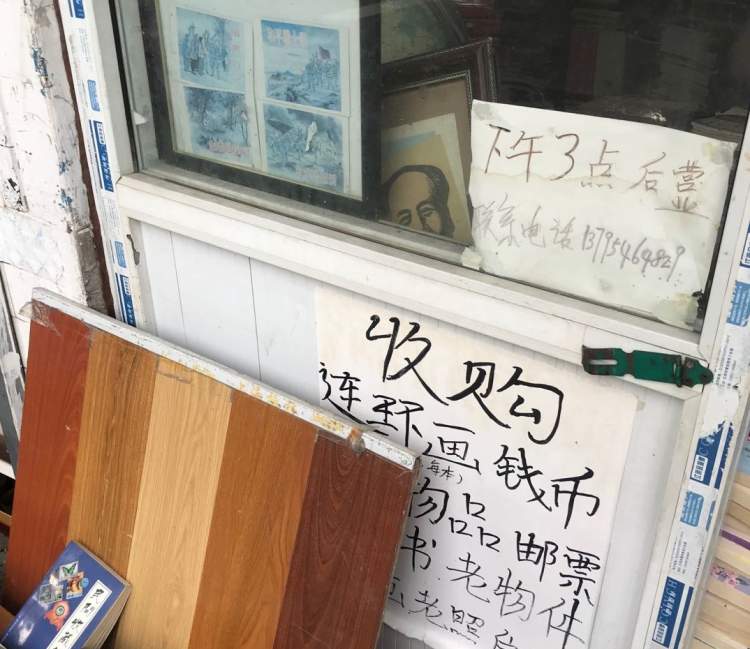 下午3点后营业
联系电话13795464829
收购
连环画钱币
每本)
物品邮票
书老物件
老照片